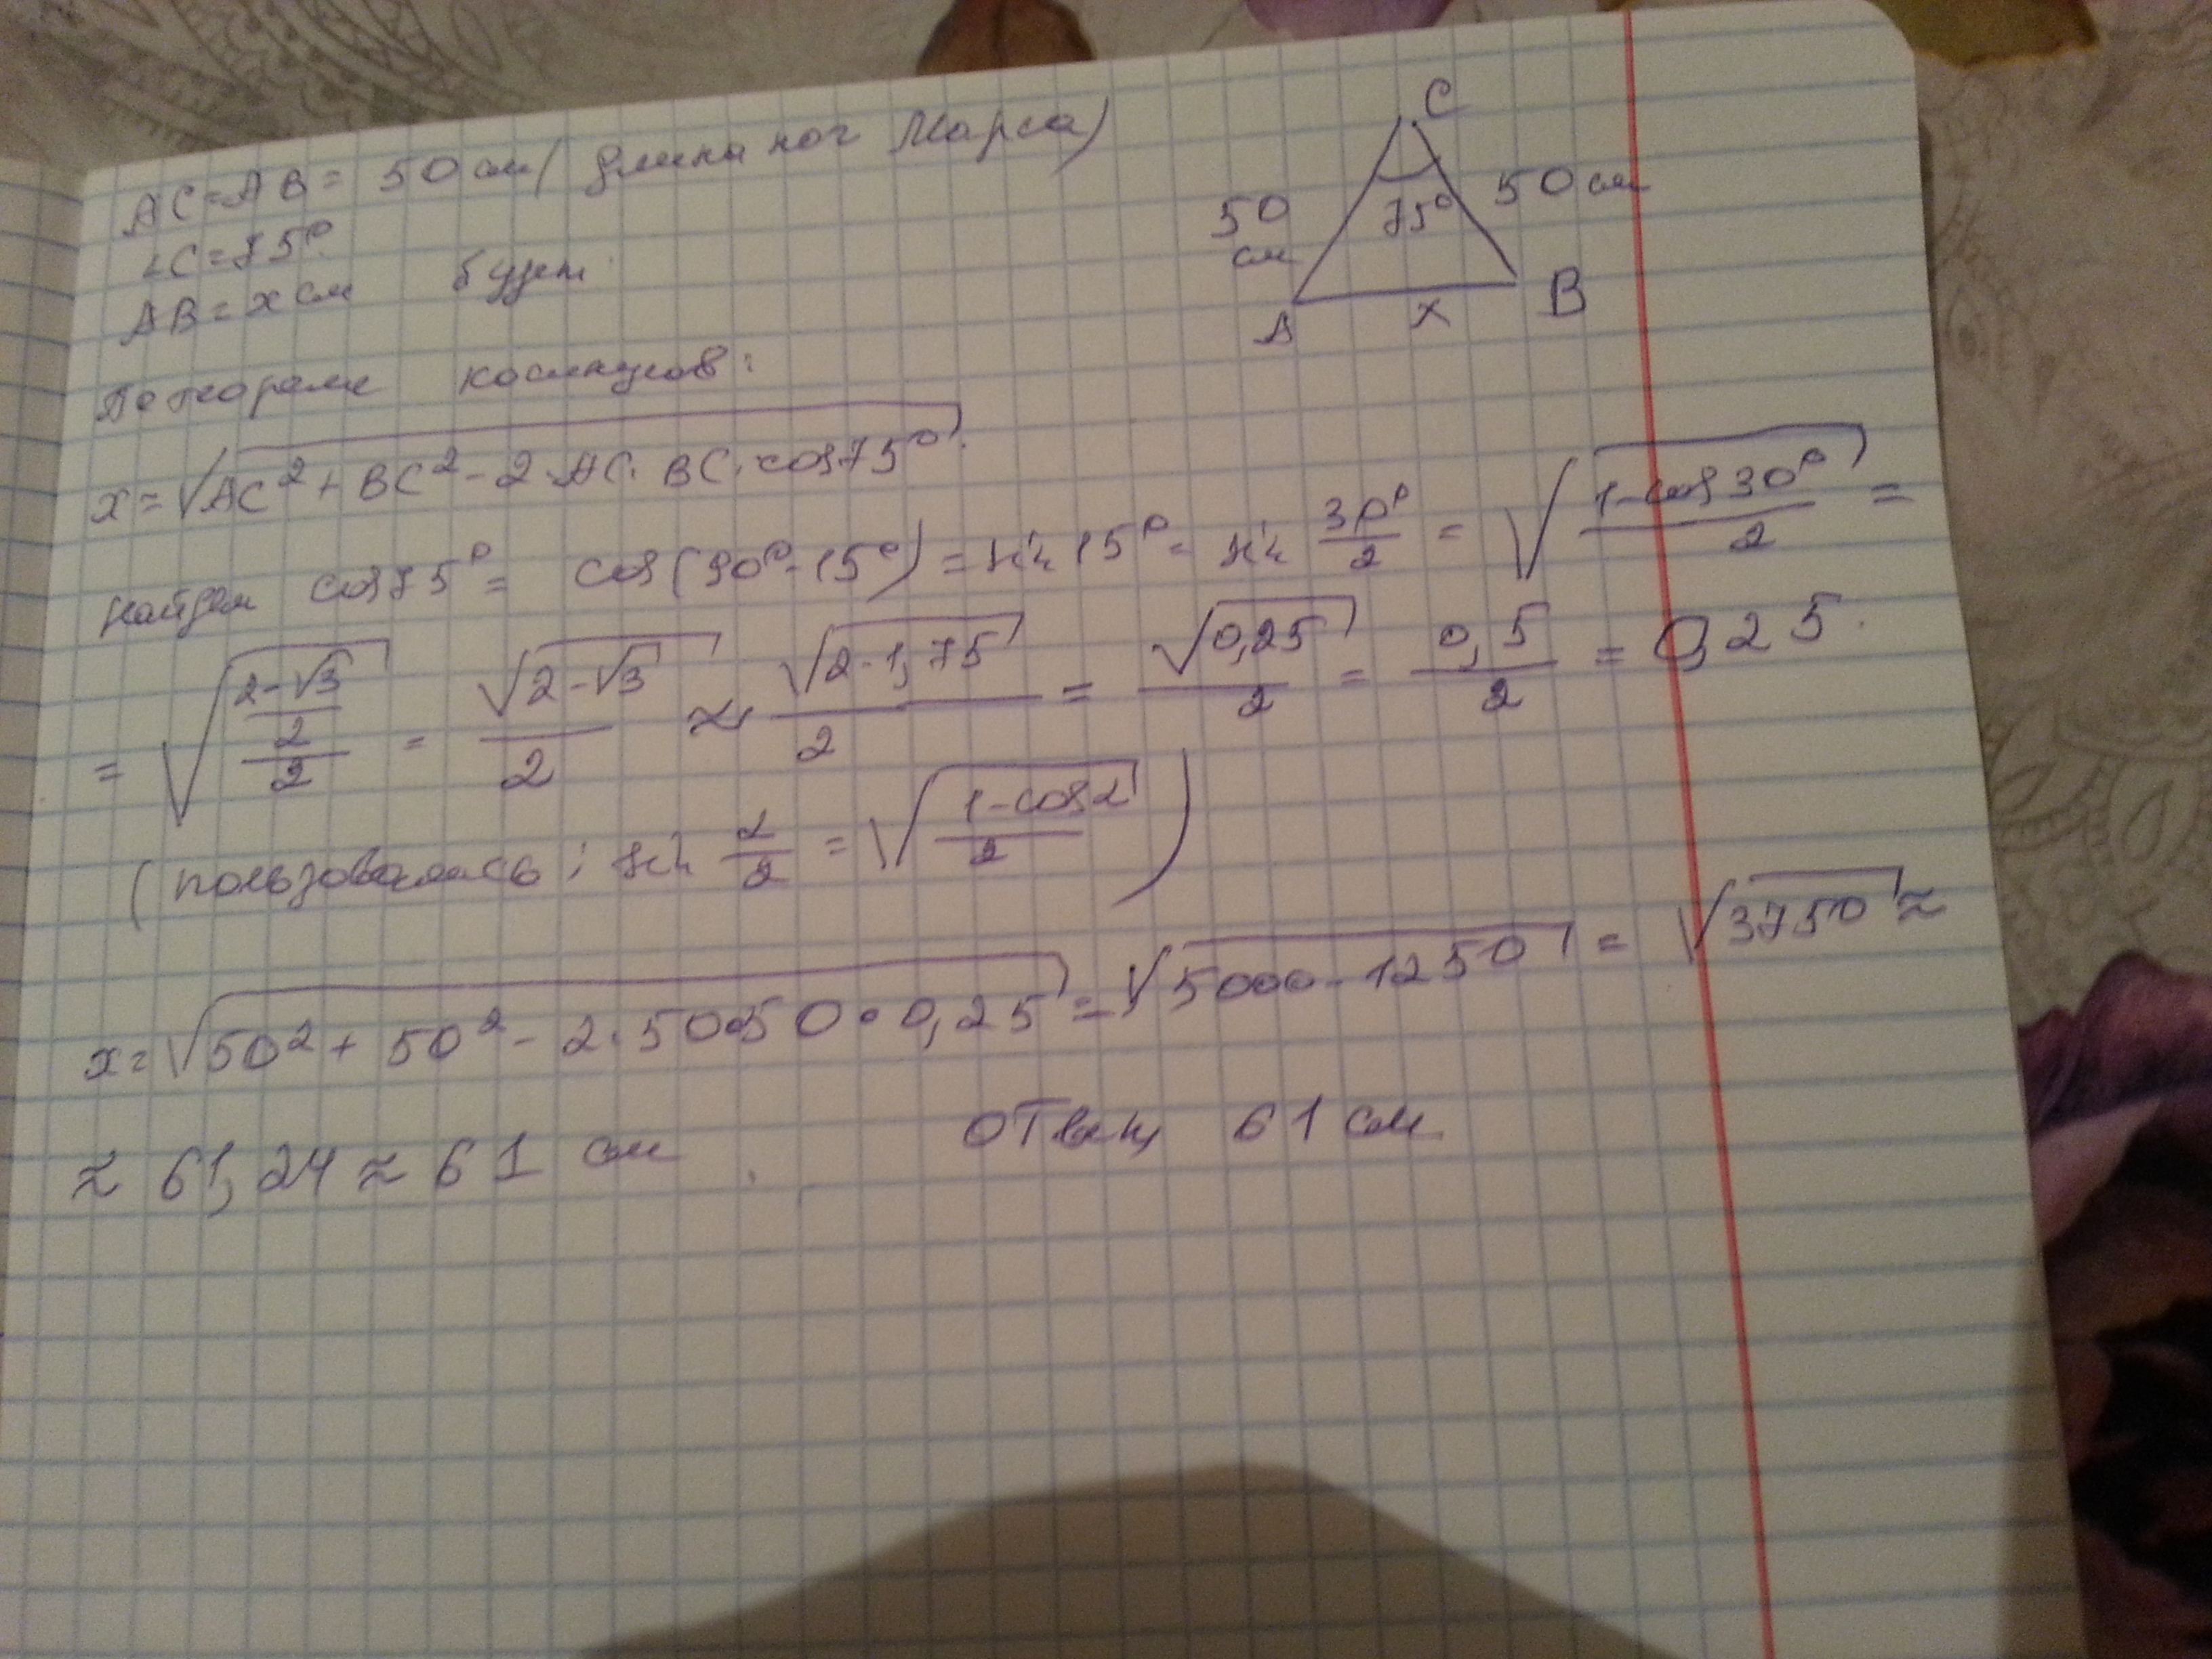 AC=AB= 50 см (длина ног Марса)
∠C=75°.
AB= x см будет
C
50 см
75°
50 см
A
x
B
По теореме косинусов:
x=√(AC²+BC²-2·AC·BC·cos75°).
Найдем cos75°= cos(90°-15°)=sin15°= sin 30°/2 = √((1-cos30°)/2) =
= √(((2-√3)/2)/2) = √(2-√3)/2 ≈ √(2-1,75)/2 = √(0,25)/2 = 0,5/2 = 0,25.
(пользовалась: sin α/2 = √((1-cosα)/2))
x=√(50²+50²-2·50·50·0,25)=√(5000-1250)=√(3750)≈
≈ 61,24 ≈ 61 см. ответ 61 см